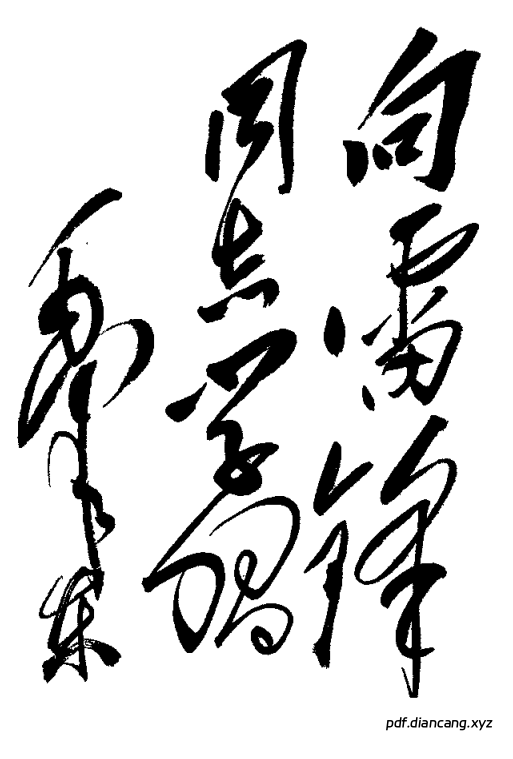 向雷锋
同志学习
毛泽东
pdf.diancang.xyz